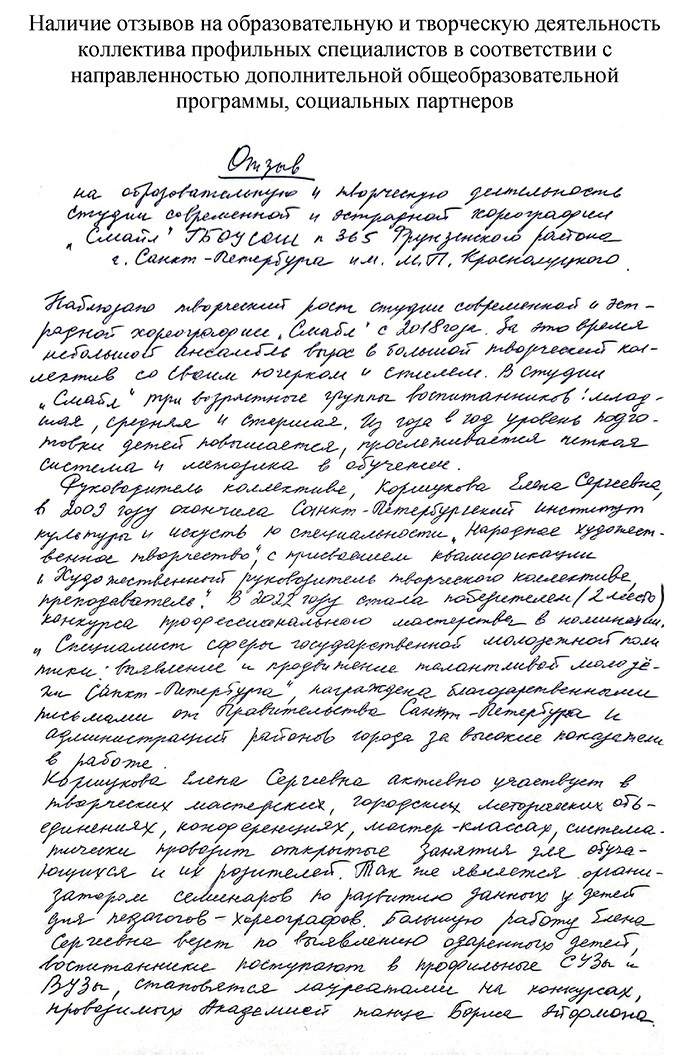 Наличие отзывов на образовательную и творческую деятельность
коллектива профильных специалистов в соответствии с
направленностью дополнительной общеобразовательной
программы, социальных партнеров
Отзыв
на образовательную и творческую деятельность
студии современной и эстрадной хореографии
„Смайл" ГБОУСОШ n 365 Фрунзенского района
г. Санкт-Петербурга им. М.П. Краснолуцкого.
Наблюдаю творческий рост студии современной и эст-
радной хореографии „Смайл" с 2018 года. За это время
небольшой ансамбль вырос в большой творческий кол-
лектив со своим почерком и стилем. В студии
„Смайл" три возрастные группы воспитанников: млад-
шая, средняя и старшая. Из года в год уровень подго-
товки детей повышается, прослеживается четкая
система и методика в обучении.
Руководитель коллектива, Коршукова Елена Сергеевна,
в 2009 году окончила Санкт-Петербургский институт
культуры и искусств по специальности „Народное художест-
венное творчество", с присвоением квалификации
„Художественный руководитель творческого коллектива,
преподаватель". В 2022 году стала победителем (2 место)
конкурса профессионального мастерства в номинации
„Специалист сферы государственной молодежной поли
тики: выявление и продвижение талантливой молодё-
жи Санкт-Петербурга", награждена благодарственными
письмами от Правительства Санкт-Петербурга и
администраций районов города за высокие показатели
в работе.
Коршукова Елена Сергеевна активно участвует в
творческих мастерских, городских методических объ-
единениях, конференциях, мастер-классах, система-
тически проводит открытые занятия для обуча-
ющихся и их родителей. Так же является органи-
затором семинаров по развитию данных у детей
для педагогов-хореографов. Большую работу Елена
Сергеевна ведет по выявлению одаренных детей,
воспитанники поступают в профильные СУЗы и
ВУЗы, становятся лауреатами на конкурсах,
проводимых Академией танца Бориса Эйфмана.